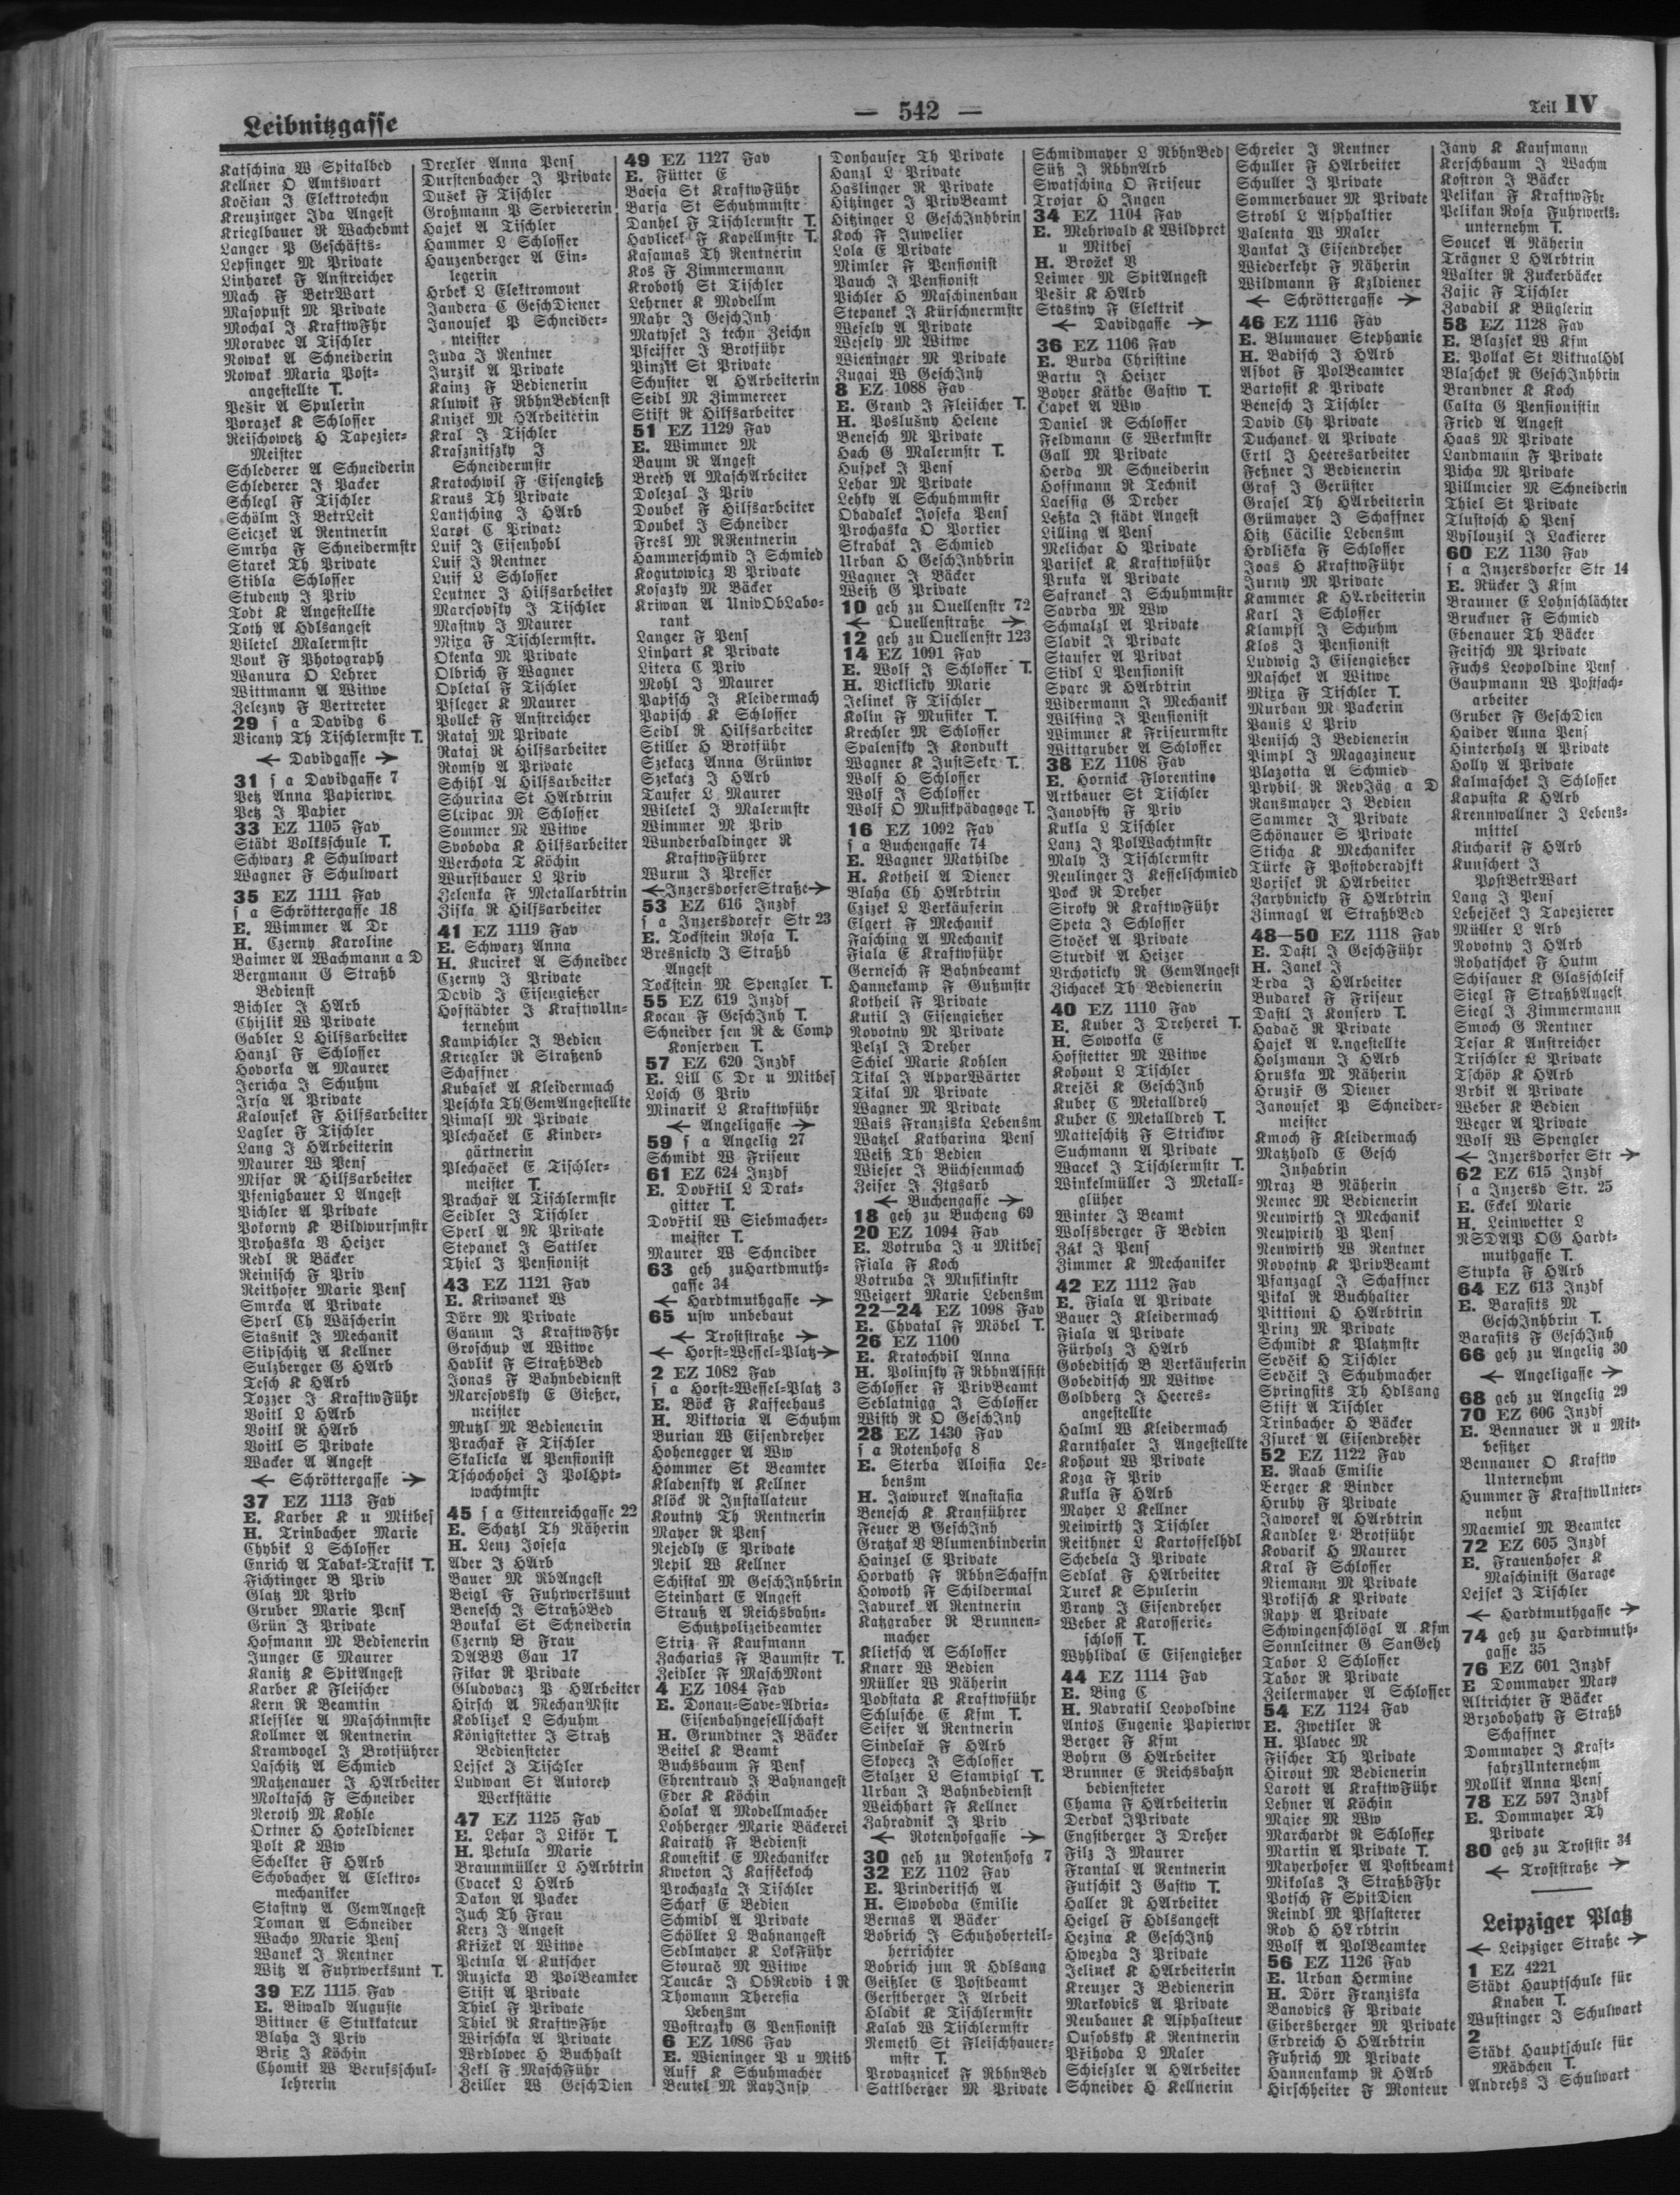 Leibnitzgasse
— 542 —
Teil IV
Katschina W Spitalbed
Kellner O Amtswart
Kočian J Elektrotechn
Kreuzinger Ida Angest
Krieglbauer R Wachebmt
Langer P Geschäfts-
Lepsinger M Private
Linharek F Anstreicher
Mach F BetrWart
Masopust M Private
Mochal J KraftwFhr
Moravec A Tischler
Nowak A Schneiderin
Nowak Maria Post-
angestellte T.
Pešir A Spulerin
Porazek K Schlosser
Reischowetz H Tapezier-
Meister
Schlederer A Schneiderin
Schlederer J Packer
Schlegl F Tischler
Schölm J BetrLeit
Seiczek A Rentnerin
Smrha F Schneidermstr
Starek Th Private
Stibla Schlosser
Studeny J Priv
Todt K Angestellte
Toth A Hdlsangest
Viletel Malermstr
Vouk F Photograph
Wanura O Lehrer
Wittmann A Witwe
Zelezny F Vertreter
29 s a Davidg 6
Vicany Th Tischlermstr T.
← Davidgasse →
31 s a Davidgasse 7
Petz Anna Papierwr
Petz J Papier
33 EZ 1105 Fav
Städt Volksschule T.
Schwarz K Schulwart
Wagner F Schulwart
35 EZ 1111 Fav
s a Schröttergasse 18
E. Wimmer A Dr
H. Czerny Karoline
Baimer A Wachmann a D
Bergmann G Straßb
Bedienst
Bichler J HArb
Chizlik W Private
Gabler L Hilfsarbeiter
Hanzl F Schlosser
Hovorka A Maurer
Jericha J Schuhm
Irsa A Private
Kalousek F Hilfsarbeiter
Lagler F Tischler
Lang J HArbeiterin
Maurer W Pens
Misar R Hilfsarbeiter
Pfenigbauer L Angest
Pichler A Private
Pokorny K Bildwurfmstr
Prohaska V Heizer
Redl R Bäcker
Reinisch F Priv
Reithofer Marie Pens
Smrcka A Private
Sperl Ch Wäscherin
Stasnik J Mechanik
Stipschitz A Kellner
Sulzberger G HArb
Tesch K HArb
Tozzer J KraftwFühr
Voitl L HArb
Voitl R HArb
Voitl S Private
Wacker A Angest
← Schröttergasse →
37 EZ 1113 Fav
E. Karber K u Mitbes
H. Trinbacher Marie
Chybik L Schlosser
Enrich A Tabak-Trafik T.
Fichtinger B Priv
Glatz M Priv
Gruber Marie Pens
Grün J Private
Hofmann M Bedienerin
Junger E Maurer
Kanitz K SpitAngest
Karber K Fleischer
Kern R Beamtin
Klessler A Maschinmstr
Kollmer A Rentnerin
Kramvogel J Brotführer
Laschitz A Schmied
Matzenauer J HArbeiter
Moltasch F Schneider
Neroth M Kohle
Ortner H Hoteldiener
Polt K Ww
Schelker F HArb
Schobacher A Elektro-
mechaniker
Stastny A GemAngest
Toman A Schneider
Wacho Marie Pens
Wanek J Rentner
Witz A Fuhrwerksunt T.
39 EZ 1115 Fav
E. Biwald Auguste
Bittner E Stukkateur
Blaha J Priv
Brix J Köchin
Chomik W Berufsschul-
lehrerin
Drexler Anna Pens
Durstenbacher J Private
Dušek F Tischler
Großmann P Serviererin
Hajek A Tischler
Hammer L Schlosser
Hauzenberger A Ein-
legerin
Hrbek L Elektromont
Jandera C GeschDiener
Janousek P Schneider-
meister
Juda J Rentner
Jurzik A Private
Kainz F Bedienerin
Kluwik F RbhnBedienst
Knižek M HArbeiterin
Kral J Tischler
Krasznitszky J
Schneidermstr
Kratochwil F Eisengieß
Kraus Th Private
Lantsching J HArb
Laroi C Private
Luif J Eisenhobl
Luif J Rentner
Luif L Schlosser
Leutner J Hilfsarbeiter
Marcsovsky J Tischler
Mastny J Maurer
Mixa F Tischlermstr.
Otenka M Private
Olbrich F Wagner
Opletal F Tischler
Pfleger K Maurer
Pollek F Anstreicher
Rataj M Private
Rataj R Hilfsarbeiter
Romsy A Private
Schihl A Hilfsarbeiter
Schurina St HArbtrin
Skripac M Schlosser
Sommer M Witwe
Svoboda K Hilfsarbeiter
Werchota T Köchin
Wurstbauer L Priv
Zelenka F Metallarbtrin
Ziska R Hilfsarbeiter
41 EZ 1119 Fav
E. Schwarz Anna
H. Kucirek A Schneider
Czerny J Private
David J Eisengießer
Hofstädter J KraftwUn-
ternehm
Kampichler J Bedien
Kriegler R Straßenb
Schaffner
Kubasek A Kleidermach
Peschka Th GemAngestellte
Pimasl M Private
Plechaček E Kinder-
gärtnerin
Plechaček E Tischler-
meister T.
Prachař A Tischlermstr
Seidler J Tischler
Sperl A M Private
Stepanek J Sattler
Thiel J Pensionist
43 EZ 1121 Fav
E. Kriwanek W
Dörr M Private
Gamm J KraftwFhr
Groschup A Witwe
Havlik F StraßbBed
Jonas F Bahnbedienst
Marcsovsky E Gießer,
meister
Mutzl M Bedienerin
Prachař F Tischler
Skalicka A Pensionist
Tschochohei J PolHpt-
wachtmstr
45 s a Ettenreichgasse 22
E. Schatzl Th Näherin
H. Lenz Josefa
Ader J HArb
Bauer M RbAngest
Beigl F Fuhrwerksunt
Benesch J StraßbBed
Boukal St Schneiderin
Czerny B Frau
DABV Gau 17
Fikar R Private
Gludovacz P HArbeiter
Hirsch A MechanMstr
Koblizek L Schuhm
Königstetter J Straß
Bediensteter
Lejsek J Tischler
Ludwan St Autorep
Werkstätte
47 EZ 1125 Fav
E. Lehar J Likör T.
H. Petula Marie
Braunmüller L HArbtrin
Cvacek L HArb
Dakon A Packer
Juch Th Frau
Kerz J Angest
Křižek A Witwe
Petula A Kutscher
Ruzicka B PolBeamter
Stift A Private
Thiel F Private
Thiel R KraftwFhr
Wirschka A Private
Wrdlovec H Buchhalt
Zekl F MaschFühr
Zeiller W GeschDien
49 EZ 1127 Fav
E. Fütter E
Barsa St KraftwFühr
Barsa St Schuhmmstr
Danhel F Tischlermstr T.
Havlicek F Kapellmstr T.
Kasamas Th Rentnerin
Kos F Zimmermann
Kroboth St Tischler
Lehrner K Modellm
Mahr J GeschInh
Matysek J techn Zeichn
Pfeiffer J Brotführ
Pinzik St Private
Schuster A HArbeiterin
Seidl M Zimmerer
Stift R Hilfsarbeiter
51 EZ 1129 Fav
E. Wimmer M
Baum R Angest
Breth A MaschArbeiter
Dolezal J Priv
Doubek F Hilfsarbeiter
Doubek J Schneider
Fresl M RRentnerin
Hammerschmid J Schmied
Kogutowicz V Private
Kosazky M Bäcker
Kriwan A UnivObLabo-
rant
Langer F Pens
Linhart K Private
Litera C Priv
Mohl J Maurer
Papisch J Kleidermach
Papisch K Schlosser
Seidl R Hilfsarbeiter
Stiller H Brotführ
Szekacz Anna Grünwr
Szekacz J HArb
Taufer L Maurer
Wiletel J Malermstr
Wimmer M Priv
Wunderbaldinger R
KraftwFührer
Wurm J Presser
← InzersdorferStraße →
53 EZ 616 Inzdf
s a Inzersdorefr Str 23
E. Tockstein Rosa T.
Bresnicky J Straßb
Angest
Tockstein M Spengler T.
55 EZ 619 Inzdf
Kocan F GeschInh T.
Schneider sen R & Comp
Konserven T.
57 EZ 620 Inzdf
E. Lill C Dr u Mitbes
Losch G Priv
Minarik L Kraftwführ
← Angeligasse →
59 s a Angelig 27
Schmidt W Friseur
61 EZ 624 Inzdf
E. Dovřtil L Drat-
gitter T.
Dovřtil W Siebmacher-
meister T.
Maurer W Schneider
63 geh zuHardtmuth-
gasse 34
← Hardtmuthgasse →
65 usw unbebaut
← Troststraße →
← Horst-Wessel-Platz →
2 EZ 1082 Fav
s a Horst-Wessel-Platz 3
E. Böck F Kaffeehaus
H. Viktoria A Schuhm
Burian W Eisendreher
Hohenegger A Ww
Hommer St Beamter
Kladensky A Kellner
Klöck R Installateur
Koutny Th Rentnerin
Mayer R Pens
Nejedly E Private
Nepil W Kellner
Schistal M GeschInhbrin
Steinhart E Angest
Strauß A Reichsbahn-
Schutzpolizeibeamter
Striz F Kaufmann
Zacharias F Baumstr T.
Zeidler F MaschMont
4 EZ 1084 Fav
E. Donau-Save-Adria-
Eisenbahngesellschaft
H. Grundtner J Bäcker
Beitel K Beamt
Buchsbaum F Pens
Ehrentraud J Bahnangest
Eder K Köchin
Holak A Modellmacher
Lohberger Marie Bäckerei
Kairath F Bedienst
Komestik E Mechaniker
Kweton J Kaffeekoch
Prochazka J Tischler
Scharf E Bedien
Schmidl A Private
Schöller L Bahnangest
Sedlmayer K LokFühr
Stourač M Witwe
Taucar J ObRevid i R
Thomann Theresia
Lebensm
Wostrazky G Pensionist
6 EZ 1086 Fav
E. Wieninger P u Mitb
Auff K Schuhmacher
Beutel M RayInsp
Donhauser Th Private
Hanzl L Private
Haslinger R Private
Hitzinger J PrivBeamt
Hitzinger L GeschInhbrin
Koch F Juwelier
Lola E Private
Mimler F Pensionist
Pauch J Pensionist
Pichler H Maschinenbau
Stepanek J Kürschnermstr
Wesely A Private
Wesely M Witwe
Wieninger M Private
Zugaj W GeschInh
8 EZ 1088 Fav
E. Grand J Fleischer T.
H. Poslušny Helene
Benesch M Private
Hach G Malermstr T.
Huspek J Pens
Lehar M Private
Lehky A Schuhmmstr
Obadalek Josefa Pens
Prochaska O Portier
Skrabák J Schmied
Urban H GeschInhbrin
Wagner J Bäcker
Weiß G Private
10 geh zu Quellenstr 72
← Quellenstraße →
12 geh zu Quellenstr 123
14 EZ 1091 Fav
E. Wolf J Schlosser T.
H. Vicklicky Marie
Jelinek F Tischler
Kolin F Musiker T.
Krechler M Schlosser
Spalensky J Kondukt
Wagner K JustSekr T.
Wolf H Schlosser
Wolf J Schlosser
Wolf O Musikpädagoge T.
16 EZ 1092 Fav
s a Buchengasse 74
E. Wagner Mathilde
H. Kotheil A Diener
Blaha Ch HArbtrin
Czizek L Verkäuferin
Elgert F Mechanik
Fasching A Mechanik
Fiala E Kraftwführ
Gernesch F Bahnbeamt
Hannekamp F Gußmstr
Kotheil F Private
Kutil J Eisengießer
Novotny M Private
Pelzl J Dreher
Schiel Marie Kohlen
Tikal J ApparWärter
Tikal M Private
Wagner M Private
Wais Franziska Lebensm
Watzel Katharina Pens
Weiß Th Bedien
Wieser J Büchsenmach
Zeiser J Ztgsarb
← Buchengasse →
18 geh zu Bucheng 69
20 EZ 1094 Fav
E. Votruba J u Mitbes
Fiala F Koch
Votruba J Musikinstr
Weigert Marie Lebensm
22—24 EZ 1098 Fav
E. Chvatal F Möbel T.
26 EZ 1100
E. Kratochvil Anna
H. Polinsky F RbhnAssist
Schlosser F PrivBeamt
Seblatnigg J Schlosser
Wisth R O GeschInh
28 EZ 1430 Fav
s a Rotenhofg 8
E. Sterba Aloisia Le-
bensm
H. Jawurek Anastasia
Benesch K Kranführer
Feuer B GeschInh
Gratzak V Blumenbinderin
Hainzel E Private
Horvath F RbhnSchaffn
Howoth F Schildermal
Javurek A Rentnerin
Katzgraber R Brunnen-
macher
Klietsch A Schlosser
Knarr W Bedien
Müller W Näherin
Podstata K Kraftwführ
Schlusche E Kfm T.
Seifer A Rentnerin
Sindelař F HArb
Skopecz J Schlosser
Stalzer L Stampigl T.
Urban J Bahnbedienst
Weichhart F Kellner
Zahradnik J Priv
← Rotenhofgasse →
30 geh zu Rotenhofg 7
32 EZ 1102 Fav
E. Prinderitsch A
H. Swoboda Emilie
Bernas A Bäcker
Bobrich J Schuhoberteil-
herrichter
Bobrich jun R Hdlsang
Geißler E Postbeamt
Gerstberger J Arbeit
Hladik K Tischlermstr
Kalab W Tischlermstr
Nemeth St Fleischhauer-
mstr T.
Provaznicek F RbhnBed
Sattlberger M Private
Schmidmayer L RbhnBed
Süß J RbhnArb
Swatschina O Friseur
Trojar H Ingen
34 EZ 1104 Fav
E. Mehrwald K Wildpret
u Mitbes
H. Brožek V
Leimer M SpitAngest
Pešir K HArb
Stastny F Elektrik
← Davidgasse →
36 EZ 1106 Fav
E. Burda Christine
Bartu J Heizer
Boyer Käthe Gastw T.
Čapek A Ww
Daniel R Schlosser
Feldmann E Werkmstr
Gall M Private
Herda M Schneiderin
Hoffmann R Technik
Laessig G Dreher
Letzka J städt Angest
Lilling A Pens
Melichar H Private
Parisek K Kraftwführ
Pruka A Private
Safranek J Schuhmmstr
Savrda M Ww
Schmalzl A Private
Slavik J Private
Staufer A Privat
Stidl L Pensionist
Spare R HArbtrin
Widermann J Mechanik
Wilfing J Pensionist
Wimmer K Friseurmstr
Wittgruber A Schlosser
38 EZ 1108 Fav
E. Hornick Florentine
Artbauer St Tischler
Janovsky F Priv
Kukla L Tischler
Lanz J PolWachtmstr
Maly J Tischlermstr
Neulinger J Kesselschmied
Pock R Dreher
Siroky R KraftwFühr
Speta J Schlosser
Stoček A Private
Sturdik A Heizer
Vrchoticky R GemAngest
Zichacek Th Bedienerin
40 EZ 1110 Fav
E. Kuber J Dreherei T.
H. Sowotka E
Hofstetter M Witwe
Kohout L Tischler
Krejči K GeschInh
Kuber C Metalldreh
Kuber C Metalldreh T.
Matteschitz F Strickwr
Suchmann A Private
Wacek J Tischlermstr T.
Winkelmüller J Metall-
glüher
Winter J Beamt
Wolfsberger F Bedien
Zak J Pens
Zimmer K Mechaniker
42 EZ 1112 Fav
E. Fiala A Private
Bauer J Kleidermach
Fiala A Private
Fürholz J HArb
Gobeditsch B Verkäuferin
Gobeditsch M Witwe
Goldberg J Heeres-
angestellte
Halml W Kleidermach
Karnthaler J Angestellte
Kohout W Private
Koza F Priv
Kukla F HArb
Mayer L Kellner
Neiwirth J Tischler
Reithner L Kartoffelhdl
Schebela J Private
Sedlak F HArbeiter
Turek K Spulerin
Vrany J Eisendreher
Weber K Karosserie-
schloss T.
Wyhlidal E Eisengießer
44 EZ 1114 Fav
E. Bing C
H. Navratil Leopoldine
Antoš Eugenie Papierwr
Berger F Kfm
Bohrn G HArbeiter
Brunner E Reichsbahn
bediensteter
Chama F HArbeiterin
Derdak JPrivate
Engstberger J Dreher
Filz J Maurer
Frantal A Rentnerin
Futschik J Gastw T.
Haller R HArbeiter
Heigel F Hdlsangest
Hezina K GeschInh
Hwezda J Private
Jelinek K HArbeiterin
Kreuzer J Bedienerin
Markovics A Private
Neubauer K Asphalteur
Ousobsky K Rentnerin
Přihoda L Maler
Schieszler A HArbeiter
Schneider H Kellnerin
Schreier J Rentner
Schuller F HArbeiter
Schuller J Private
Sommerbauer M Private
Strobl L Asphaltier
Valenta W Maler
Vankat J Eisendreher
Wiederkehr F Näherin
Wildmann F Kzldiener
← Schröttergasse →
46 EZ 1116 Fav
E. Blumauer Stephanie
H. Badisch J HArb
Asbot F PolBeamter
Bartosik K Private
Benesch J Tischler
David Ch Private
Duchanek A Private
Ertl J Heeresarbeiter
Feßner J Bedienerin
Graf J Gerüster
Grasel Th HArbeiterin
Grümayer J Schaffner
Hitz Cäcilie Lebensm
Hrdlička F Schlosser
Joas H KraftwFühr
Jurny M Private
Kammer K HArbeiterin
Karl J Schlosser
Klampfl J Schuhm
Klos J Pensionist
Ludwig J Eisengießer
Maschek A Witwe
Mixa F Tischler T.
Murban M Packerin
Panis L Priv
Penisch J Bedienerin
Pimpl J Magazineur
Plazotta A Schmied
Prybil R RevJäg a D
Ransmayer J Bedien
Sammer J Private
Schönauer S Private
Sticha K Mechaniker
Türke F Postoberadjkt
Vorisek R HArbeiter
Zarybnicky F HArbtrin
Zinnagl A StraßbBed
48—50 EZ 1118 Fav
E. Dastl J GeschFühr
H. Janek J
Brda J HArbeiter
Budarek F Friseur
Dastl J Konserv T.
Hadač R Private
Hajek A Angestellte
Holzmann J HArb
Hruska M Näherin
Hruziř G Diener
Janousek P Schneider-
meister
Kmoch F Kleidermach
Matzhold E Gesch
Inhabrin
Mraz B Näherin
Nemec M Bedienerin
Neuwirth J Mechanik
Neuwirth P Pens
Neuwirth W Rentner
Novotny K PrivBeamt
Pfanzagl J Schaffner
Pikal R Buchhalter
Pittioni H HArbtrin
Prinz M Private
Schmidt K Platzmstr
Sevčik H Tischler
Sevčik J Schuhmacher
Springsits Th Hdlsang
Stift A Tischler
Trinbacher H Bäcker
Zsurek A Eisendreher
52 EZ 1122 Fav
E. Raab Emilie
Berger K Binder
Hruby F Private
Jaworek A HArbtrin
Kandler L Brotführ
Kovarik H Maurer
Kral F Schlosser
Niemann M Private
Prokisch K Private
Rapp A Private
Schwingenschlögl A Kfm
Sonnleitner G SanGeh
Tabor L Schlosser
Tabor R Private
Zeilermayer A Schlosser
54 EZ 1124 Fav
E. Zwettler R
H. Plavec M
Fischer Th Private
Hirout M Bedienerin
Larott A KraftwFühr
Lehner A Köchin
Majer M Ww
Marchardt R Schlosser
Martin A Private T.
Mayerhofer A Postbeamt
Mikolas J StraßbFhr
Potsch F SpitDien
Reindl M Pflasterer
Rod H HArbtrin
Wolf A PolBeamter
56 EZ 1126 Fav
E. Urban Hermine
H. Dörr Franziska
Banovics F Private
Eibersberger M Private
Erdreich H HArbtrin
Fuhrich M Private
Hannenkamp R HArb
Hirschheiter F Monteur
Jany K Kaufmann
Kerschbaum J Wachm
Kostron J Bäcker
Pelikan F KraftwFhr
Pelikan Rosa Fuhrwerks-
unternehm T.
Soucek A Näherin
Trägner L HArbtrin
Walter R Zuckerbäcker
Zajic F Tischler
Zavadil K Büglerin
58 EZ 1128 Fav
E. Blazsek W Kfm
E. Pollak St VitkualHdl
Blaschek R GeschInhbrin
Brandner K Koch
Calta G Pensionistin
Fried A Angest
Haas M Private
Landmann F Private
Picha M Private
Pillmeier M Schneiderin
Thiel St Private
Tlustosch H Pens
Vyslouzil J Lackierer
60 EZ 1130 Fav
s a Inzersdorfer Str 14
E. Rücker J Kfm
Brauner E Lohnschlächter
Bruckner F Schmied
Ebenauer Th Bäcker
Feitsch M Private
Fuchs Leopoldine Pens
Gaupmann W Postfach-
arbeiter
Gruber F GeschDien
Haider Anna Pens
Hinterholz A Private
Holly A Private
Kalmaschek J Schlosser
Kapusta K HArb
Krennwallner J Lebens-
mittel
Kucharik F HArb
Kunschert J
PostBetrWart
Lang J Pens
Lehejček J Tapezierer
Müller L Arb
Novotny J HArb
Rohatschek F Hutm
Schisauer K Glasschleif
Siegl F StraßbAngest
Siegl J Zimmermann
Smoch G Rentner
Tesar K Anstreicher
Trischler L Private
Tschöp K HArb
Vrbik A Private
Weber K Bedien
Weger A Private
Wolf W Spengler
← Inzersdorfer Str →
62 EZ 615 Inzdf
s a Inzersd Str. 25
E. Eckel Marie
H. Leinwetter L
NSDAP OG Hardt-
muthgasse T.
Stupka F HArb
64 EZ 613 Inzdf
E. Barasits M
GeschInhbrin T.
Barasits F GeschInh
66 geh zu Angelig 30
← Angeligasse →
68 geh zu Angelig 29
70 EZ 606 Inzdf
E. Bennauer R u Mit-
besitzer
Bennauer O Kraftw
Unternehm
Hummer F KraftwUnter-
nehm
Maemiel M Beamter
72 EZ 605 Inzdf
E. Frauenhofer K
Maschinist Garage
Lejsek J Tischler
← Hardtmuthgasse →
74 geh zu Hardtmuth-
gasse 35
76 EZ 601 Inzdf
E Dommayer Mary
Altrichter F Bäcker
Brzobohaty F Straßb
Schaffner
Dommayer J Kraft-
fahrzUnternehm
Mollik Anna Pens
78 EZ 597 Inzdf
E. Dommayer Th
Private
80 geh zu Troststr 34
← Troststraße →
Leipziger Platz
← Leipziger Straße →
1 EZ 4221
Städt Hauptschule für
Knaben T.
Wustinger J Schulwart
2
Städt Hauptschule für
Mädchen T.
Andrehs J Schulwart